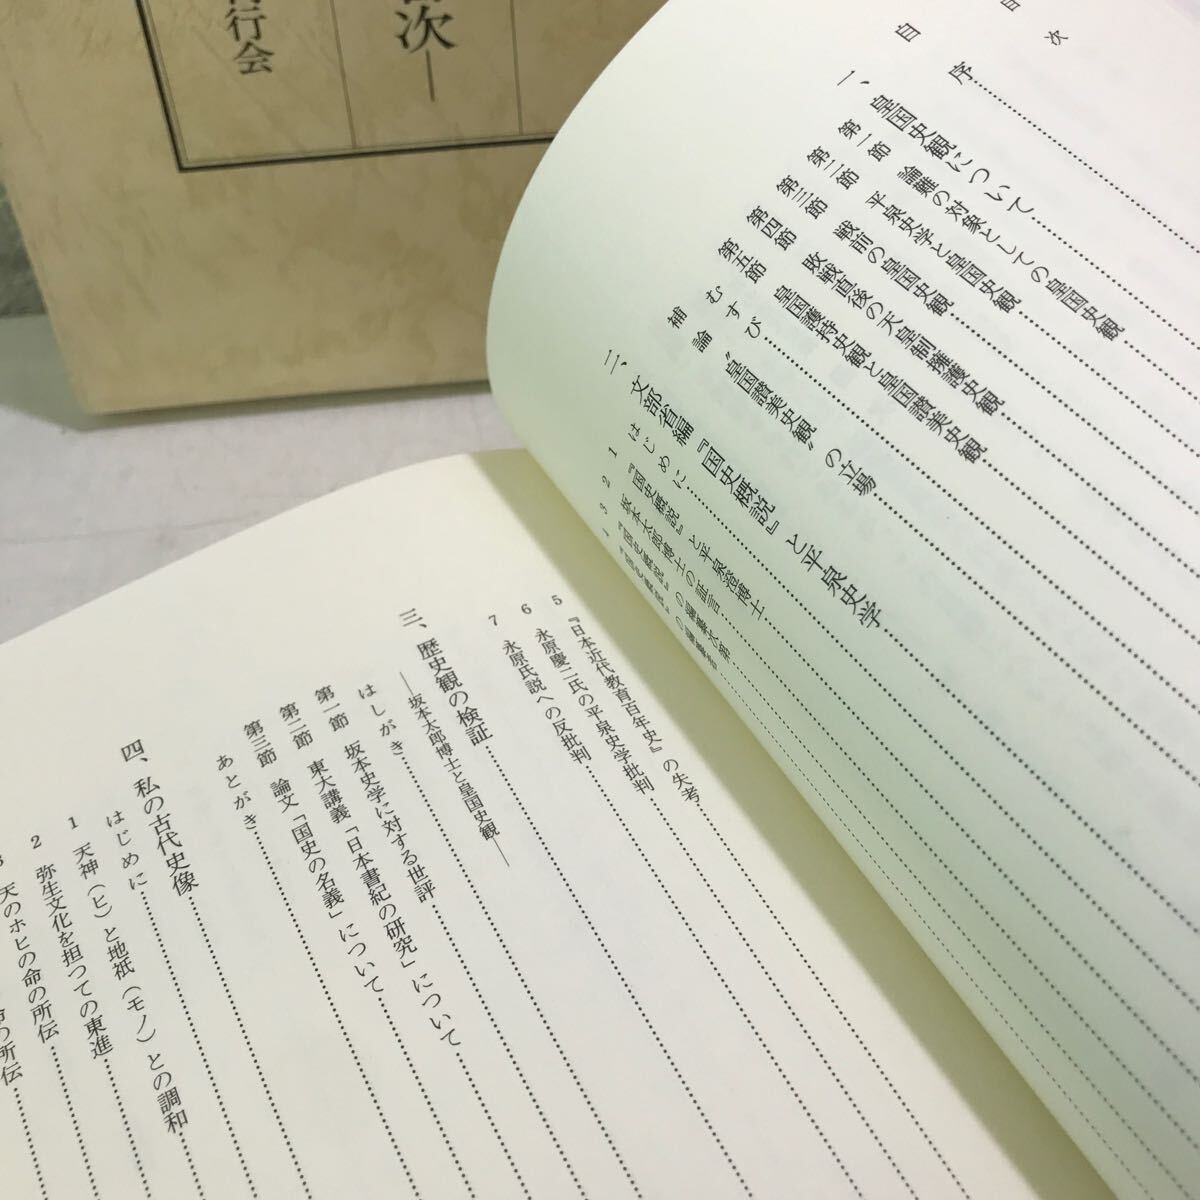 目次
自序
一、皇国史観について
第一節　論難の対象としての皇国史観
第二節　平泉史学と皇国史観
第三節　戦前の皇国史観
第四節　敗戦直後の天皇制擁護史観
第五節　皇国護持史観と皇国讃美史観
むすび
補論　“皇国讃美史観”の立場
二、文部省編『国史概説』と平泉史学
はじめに
1　『国史概説』と平泉澄博士
2　坂本太郎博士の証言
3　『国史概説』の編纂次第
4　『国史概説』の編纂者
5　『日本近代教育百年史』の失考
6　永原慶二氏の平泉史学批判
7　永原氏説への反批判
三、歴史観の検証
―坂本太郎博士と皇国史観―
はしがき
第一節　坂本史学に対する世評
第二節　東大講義「日本書紀の研究」について
第三節　論文「国史の名義」について
あとがき
四、私の古代史像
はじめに
1　天神（ヒ）と地祇（モノ）との調和
2　弥生文化を担つての東進
3　天のホヒの命の所伝
命の所伝
次―
行会